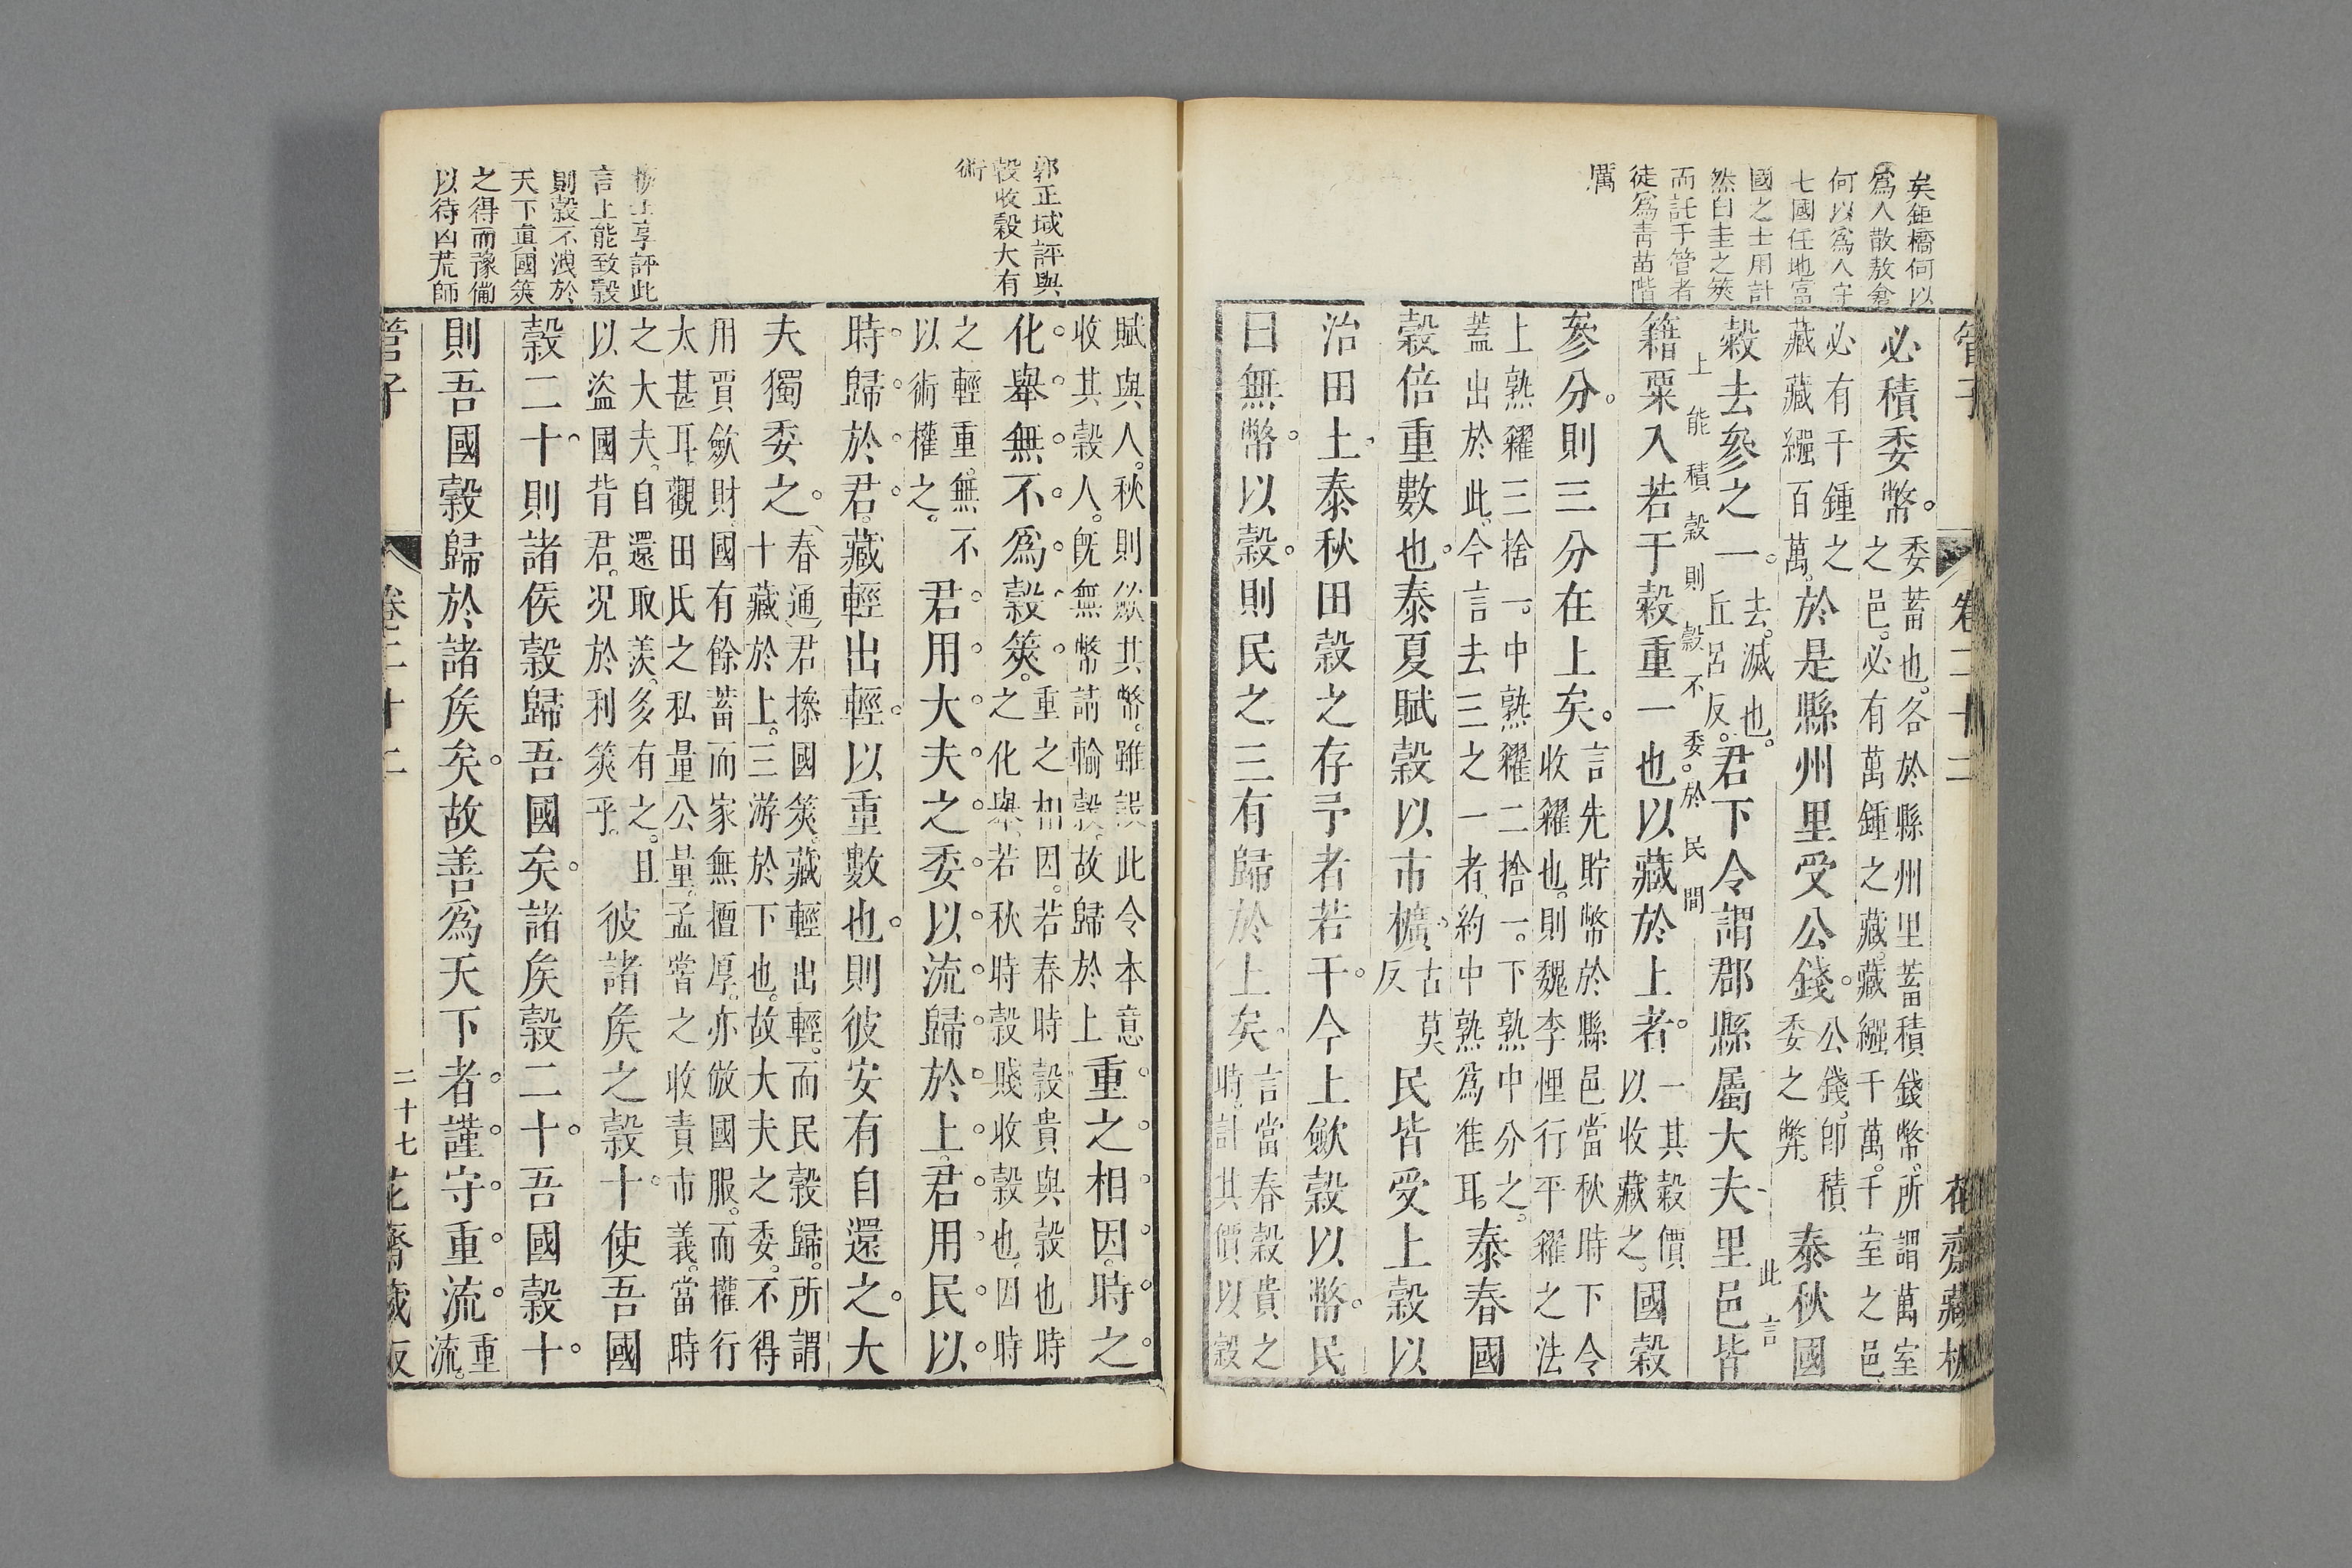 矣鉅橋何以
爲人散敖倉
何以爲人守
七國任地富
國之士用計
然白圭之筴
而託于管者
徒爲靑苗階
厲
管子
卷二十二
花齋藏板
必積委幣。委蓄也。各於縣州里蓄積錢幣。所謂萬室
之邑。必有萬鍾之藏。藏繦千萬。千室之邑。
必有千鍾之
藏藏繦百萬。於是縣州里受公錢。公錢。卽積
委之弊。泰秋國
穀去參之一。去。減也。
丘呂反。君下令謂郡縣屬大夫里邑皆
此言
上能積穀則穀不委。於民間
籍粟入若干穀重一也以藏於上者。一其穀價
以收藏之。國穀
參分。則三分在上矣。言先貯幣於縣邑當秋時下令
收糴也。則魏李悝行平糴之法
上熟糴三捨一。中熟糴二捨一。下熟中分之。
蓋出於此。今言去三之一者。約中熟爲准耳。泰春國
穀倍重數也。泰夏賦穀以市櫎。古莫
反民皆受上穀以
治田土。泰秋田穀之存予者若干。今上斂穀以幣。民
曰無幣。以穀。則民之三有歸於上矣。言當春穀貴之
時。計其價以穀
郭正域評與
穀收穀大有
術
賦與人。秋則斂其幣。雖設此令本意
收其穀人。旣無幣請輸穀。故歸於上重之相因。時之
化舉。無不爲穀筴。重之相因。若春時穀貴與穀也時
之化舉。若秋時穀賤收穀也。因時
之輕重。無不
以術權之。君用大夫之委。以流歸於上。君用民。以
時歸於君。藏輕出輕。以重數也。則彼安有自還之。大
夫獨委之。春通君操國筴。藏輕出輕。而民穀歸。所謂
十藏於上。三游於下也。故大夫之委。不得
用賈斂財。國有餘蓄而家無擅厚。亦倣國服。而權行
太甚耳。觀田氏之私量公量。孟嘗之收責市義。當時
之大夫。自還取羨。多有之。且
以盜國背君。況於利筴乎。彼諸矦之穀十。使吾國
穀二十。則諸矦穀歸吾國矣。諸矦穀二十。吾國穀十。
則吾國穀歸於諸矦矣。故善爲天下者。謹守重流。重
流。
張上享評此
言上能致穀
則穀不洩於
天下直國筴
之得而豫備
以待凶荒師
管子
卷二十二
二十七
花齋藏板